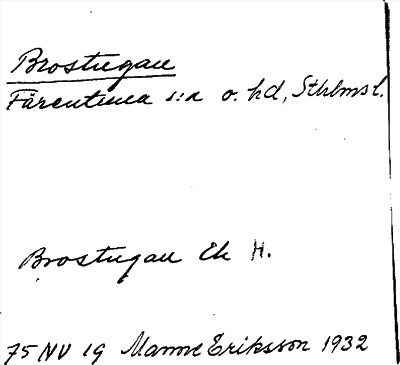 Brostugan
Färentuna s:n o. hd, Sthlms l.
Brostugan Ek H.
75 NV 19 Manne Eriksson 1932